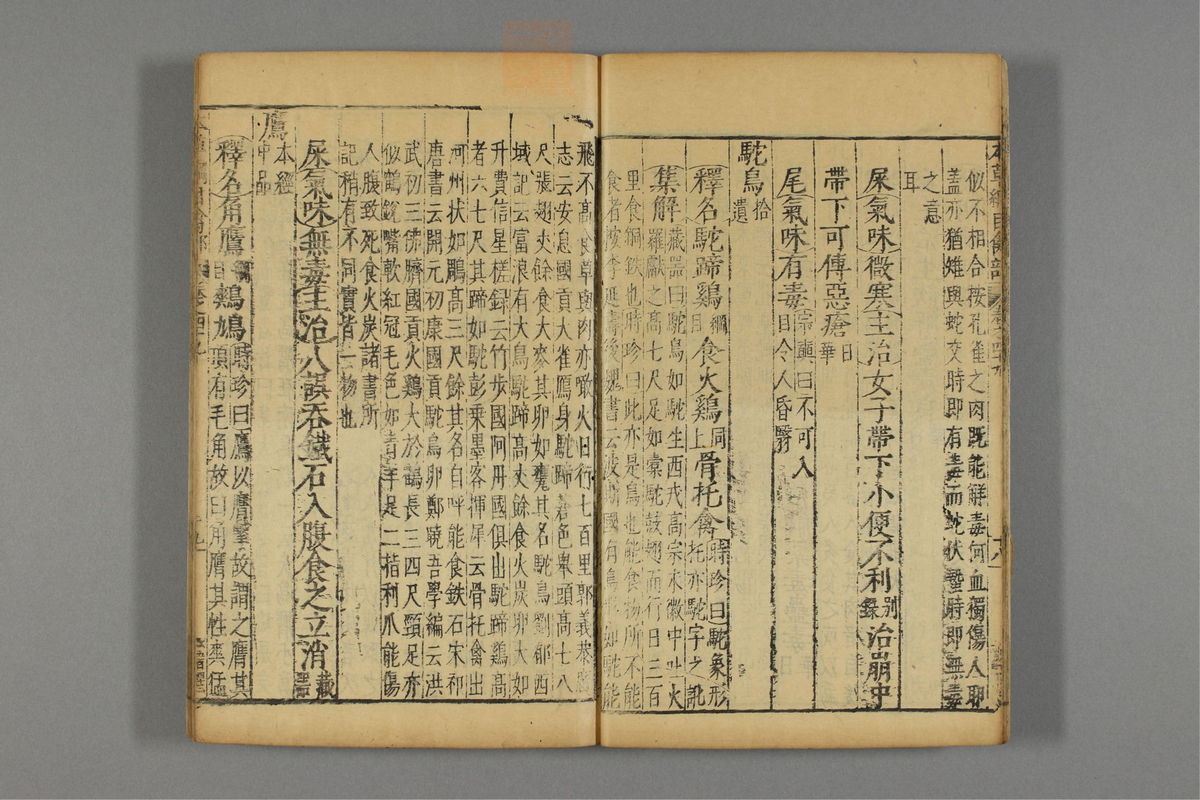 似不相合按孔雀之肉既能解毒何血獨傷人耶
蓋亦猶雉與蛇交時即有毒而蛇伏蟄時即無毒
之意
耳
屎氣味微寒主治女子帶下小便不利别錄治崩中
帶下可傅惡瘡日華
尾氣味有毒宗奭曰不可入
目令人昏翳
駝鳥拾遺
釋名駝蹄雞綱目食火雞同上骨托禽時珍曰駝象形
托亦駝字之訛
集解藏器曰駝鳥如駝生西戎高宗永徽中吐火
羅獻之高七尺足如橐駝鼓翅而行日三百
里食銅鉄也時珍曰此亦是鳥也能食物所不能
食者按李延壽後魏書云波斯國有鳥形如駝能
飛不高食草與肉亦噉火日行七百里郭義恭廣
志云安息國貢大雀鴈身駝蹄蒼色舉頭高七八
尺張翅丈餘食大麥其卵如甕其名駝鳥劉郁西
域記云富浪有大鳥駝蹄高丈餘食火炭卵大如
升費信星槎録云竹步國阿丹國俱出駝蹄雞高
者六七尺其蹄如駝彭乘墨客揮犀云骨托禽出
河州状如鵰高三尺餘其名自呼能食鉄石宋祁
唐書云開元初康國貢駝鳥卵鄭曉吾學編云洪
武初三佛臍國貢火雞大於鶴長三四尺頸足亦
似鶴銳嘴軟紅冠毛色如青羊足二指利爪能傷
人腹致死食火炭諸書所
記稍有不同實皆一物也
屎氣味無毒主治人誤吞鐵石入腹食之立消藏器
鷹本經中品
釋名角鷹綱目鷞鳩時珍曰鷹以膺擊故謂之鷹其
頂有毛角故曰角鷹其性爽猛